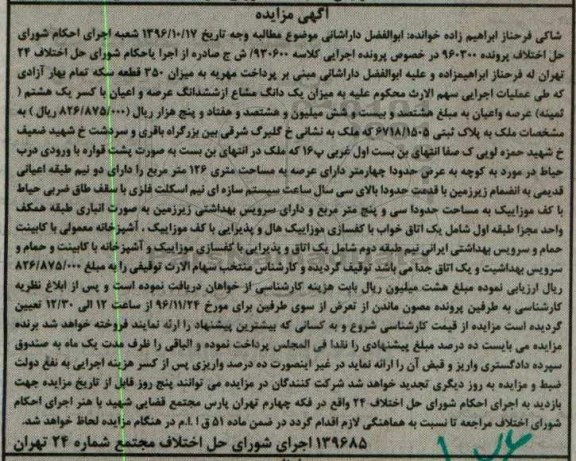 آگهی مزایده
شاکی فرحناز ابراهیم زاده خوانده: ابوالفضل داراشانی موضوع مطالبه وجه تاریخ ۱۳۹۶/۱۰/۱۷ شعبه اجرای احکام شورای
حل اختلاف پرونده ۹۶۰۳۰۰ در خصوص پرونده اجرایی کلاسه ۹۳۰۶۰۰/ ش ج صادره از اجرا یاحکام شورای حل اختلاف ۲۴
تهران له فرحناز ابراهیمزاده و علیه ابوالفضل داراشانی مبنی بر پرداخت مهریه به میزان ۳۵۰ قطعه سکه تمام بهار آزادی
که طی عملیات اجرایی سهم الارث محکوم علیه به میزان یک دانگ مشاع ازششدانگ عرصه و اعیان با کسر یک هشتم (
ثمینه) عرصه واعیان به مبلغ هشتصد و بیست و شش میلیون و هشتصد و هفتاد و پنج هزار ریال (۸۲۶/۸۷۵/۰۰۰ ریال) به
مشخصات ملک به پلاک ثبتی ۶۷۱۸/۱۵۰۵ که ملک به نشانی خ گلبرگ شرقی بین بزرگراه باقری و سردشت خ شهید ضعیف
خ شهید حمزه لویی ک صفا انتهای بن بست اول غربی پ۱۶ که ملک در انتهای بن بست به صورت پشت قواره با ورودی درب
حیاط در مورد به کوچه به عرض حدودا چهارمتر دارای عرصه به مساحت متری ۱۲۶ متر مربع را دارای دو نیم طبقه اعیانی
قدیمی به انضمام زیرزمین با قدمت حدودا بالای سی سال ساعت سیستم سازه ای نیم اسکلت فلزی با سقف طاق ضربی حیاط
با کف موزاییک به مساحت حدودا سی و پنج متر مربع و دارای سرویس بهداشتی زیرزمین به صورت انباری طبقه همکف
واحد مجزا طبقه اول شامل یک اتاق خواب با کفسازی موزاییک هال و پذیرایی با کف موزاییک ، آشپزخانه معمولی با کابینت
حمام و سرویس بهداشتی ایرانی نیم طبقه دوم شامل یک اتاق و پذیرایی با کفسازی موزاییک و آشپزخانه با کابینت و حمام و
سرویس بهداشیت و یک اتاق جدا می باشد توقیف گردیده و کارشناس منتخب سهام الارث توقیفی را به مبلغ ۸۲۶/۸۷۵/۰۰۰
ریال ارزیابی نموده مبلغ هشت میلیون ریال بابت هزینه کارشناسی از خواهان دریافت نموده است و پس از ابلاغ نظریه
کارشناسی به طرفین پرونده مصون ماندن از تعرض از سوی طرفین برای مورخ ۹۶/۱۱/۲۴ از ساعت ۱۲ الی ۱۲/۳۰ تعیین
گردیده است مزایده از قیمت کارشناسی شروع و به کسانی که بیشترین پیشنهاد را ارئه نمایند فروخته خواهد شد برنده
مزایده می بایست ده درصد مبلغ پیشنهادی را نقدا فی المجلس پرداخت نموده و الباقی را ظرف مدت یک ماه به صندوق
سپرده دادگستری واریز و قبض آن را ارائه نماید در غیر اینصورت ده درصد واریزی پس از کسر هزینه اجرایی به نفع دولت
ضبط و مزایده به روز دیگری تجدید خواهد شد شرکت کنندگان در مزایده می توانند پنج روز قابل از تاریخ مزایده جهت
بازدید به اجرای احکام شورای حل اختلاف ۲۴ واقع در فکه چهارم تهران پارس مجتمع قضایی شهید با هنر اجرای احکام
شورای اختلاف مراجعه تا نسبت به هماهنگی لازم اقدام گردد در ضمن ماده ۵۱ ق ا .ا.م در هنگام مزایده لحاظ خواهد شد.
۱۳۹۶۸۵ اجرای شورای حل اختلاف مجتمع شماره ۲۴ تهران